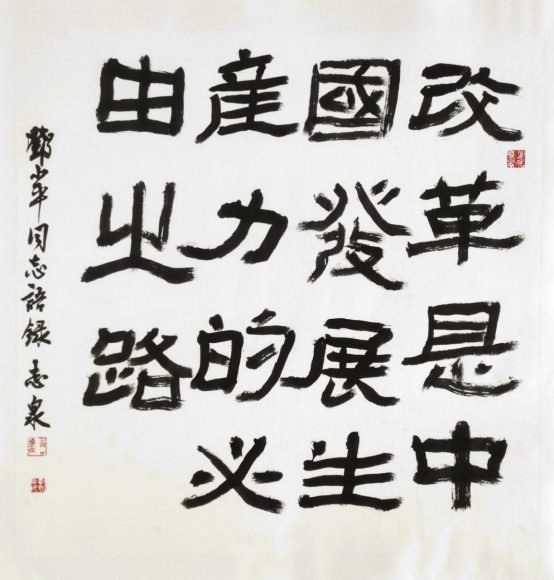 改革是中
國發展生
産力的必
由之路
鄧小平同志語録 志泉